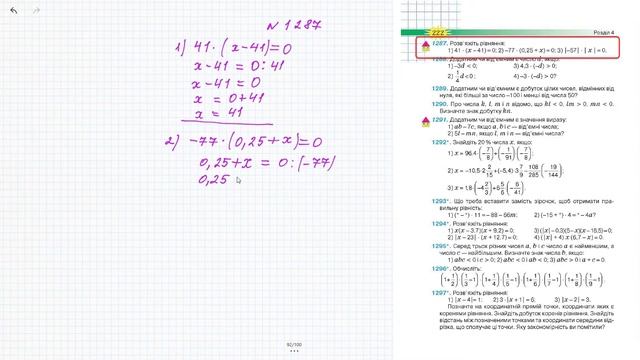 N 1287
1) 41 · (x-41)=0
x-41 = 0:41
x-41 = 0
x = 0+41
x = 41
2) -77·(0,25+x)=0
0,25+x = 0:(-77)
0,25
92/100
222 Розділ 4
1287. Розв'яжіть рівняння:
1) 41 · (x – 41) = 0; 2) –77 · (0,25 + x) = 0; 3) |–57| · |x| = 0.
1288. Додатним чи від'ємним є число d, якщо:
1) –3d < 0; 3) 4,3 · (–d) > 0;
2) 1/4 d < 0; 4) –3 · (–d) > 0?
1289. Додатним чи від'ємним є добуток цілих чисел, відмінних від
нуля, які більші за число –100 і менші від числа 50?
1290. Про числа k, l, m і n відомо, що kl < 0, lm > 0, mn < 0.
Визначте знак добутку kn.
1291. Додатним чи від'ємним є значення виразу:
1) ab – 7c, якщо a, b і c — від'ємні числа;
2) 5l – mn, якщо l, m і n — від'ємні числа?
1292*. Знайдіть 20 % числа x, якщо:
1293*. Що треба вставити замість зірочок, щоб отримати пра-
вильну рівність:
1) (* – *) · 11 = –88 – 66m; 2) (–15 + *) · 4 = * – 4a?
1294*. Розв'яжіть рівняння:
1) x(x – 3,7)(x + 9,2) = 0; 3) (|x| – 0,3)(5 – x)(x – 18,5) = 0;
2) |x – 23| · (x + 12,7) = 0; 4) (|x| + 4) x (6,7 – x) = 0.
1295*. Серед трьох різних чисел a, b і c число a є найменшим, а
число c — найбільшим. Визначте знак числа b, якщо:
1296*. Обчисліть:
1297*. Розв'яжіть рівняння:
1) |x – 4| = 1; 2) 3 · |x + 1| = 6; 3) |x – 2| = 3.
Позначте на координатній прямій точки, координати яких є
коренями рівняння. Знайдіть добуток коренів рівняння. Знайдіть
відстань між позначеними точками та координати середини відрі-
зка, що сполучає ці точки. Яку закономірність ви помітили?